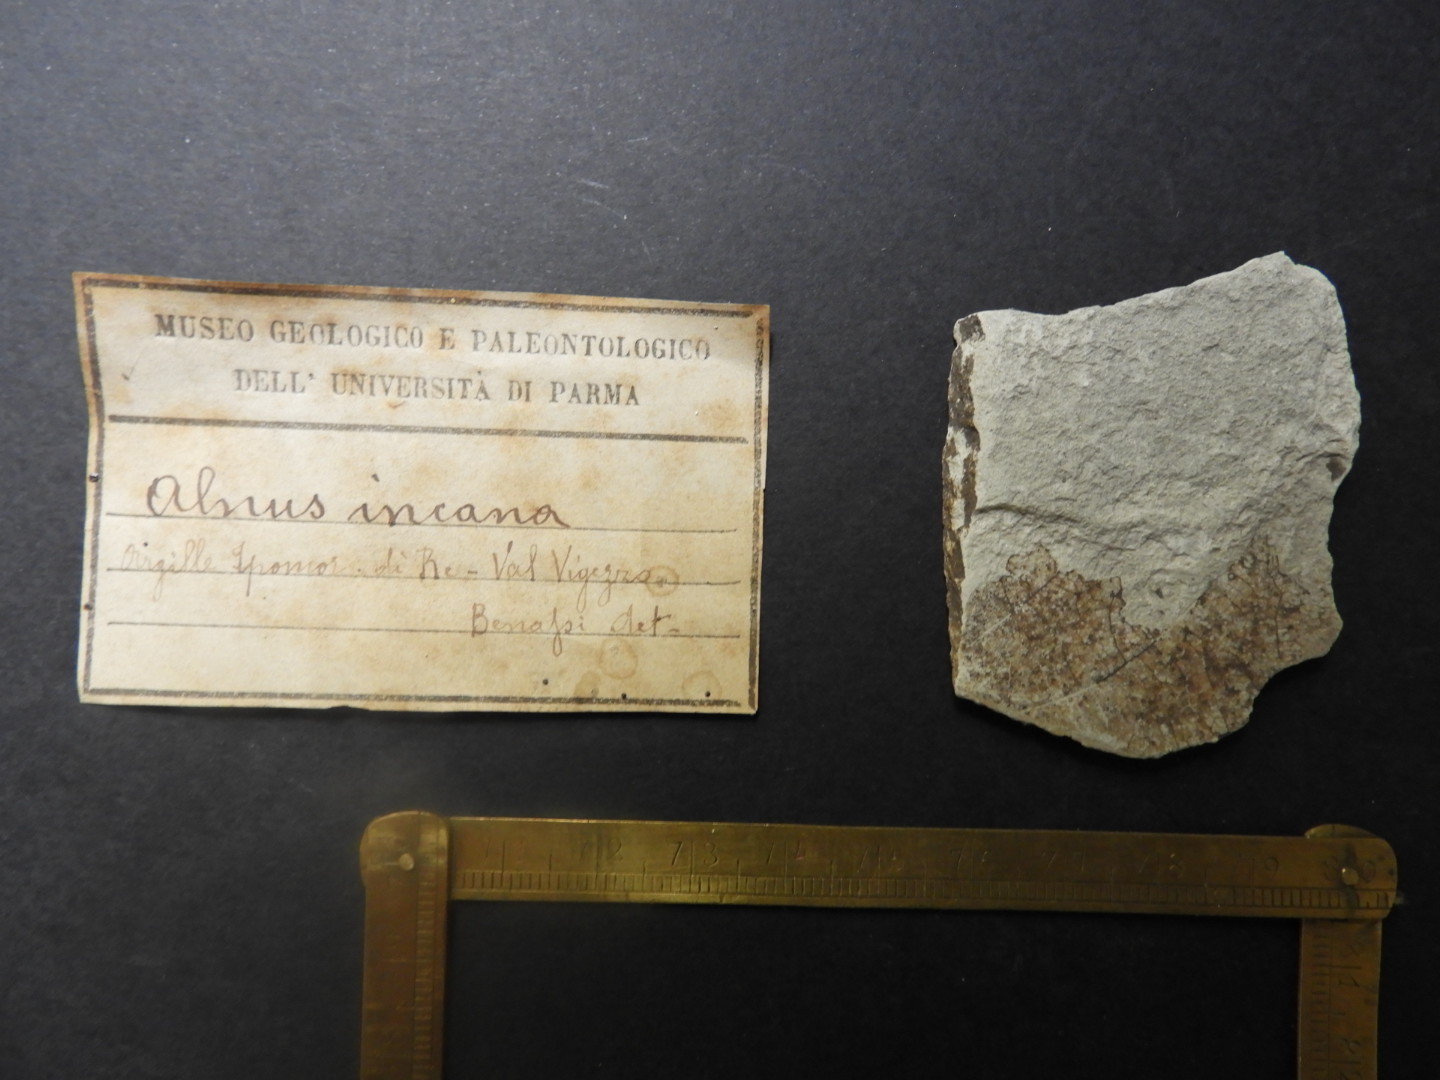 MUSEO GEOLOGICO E PALEONTOLOGICO
DELL' UNIVERSITÀ DI PARMA
Alnus incana
Argille di Re - Val Vigezzo
Benassi det-